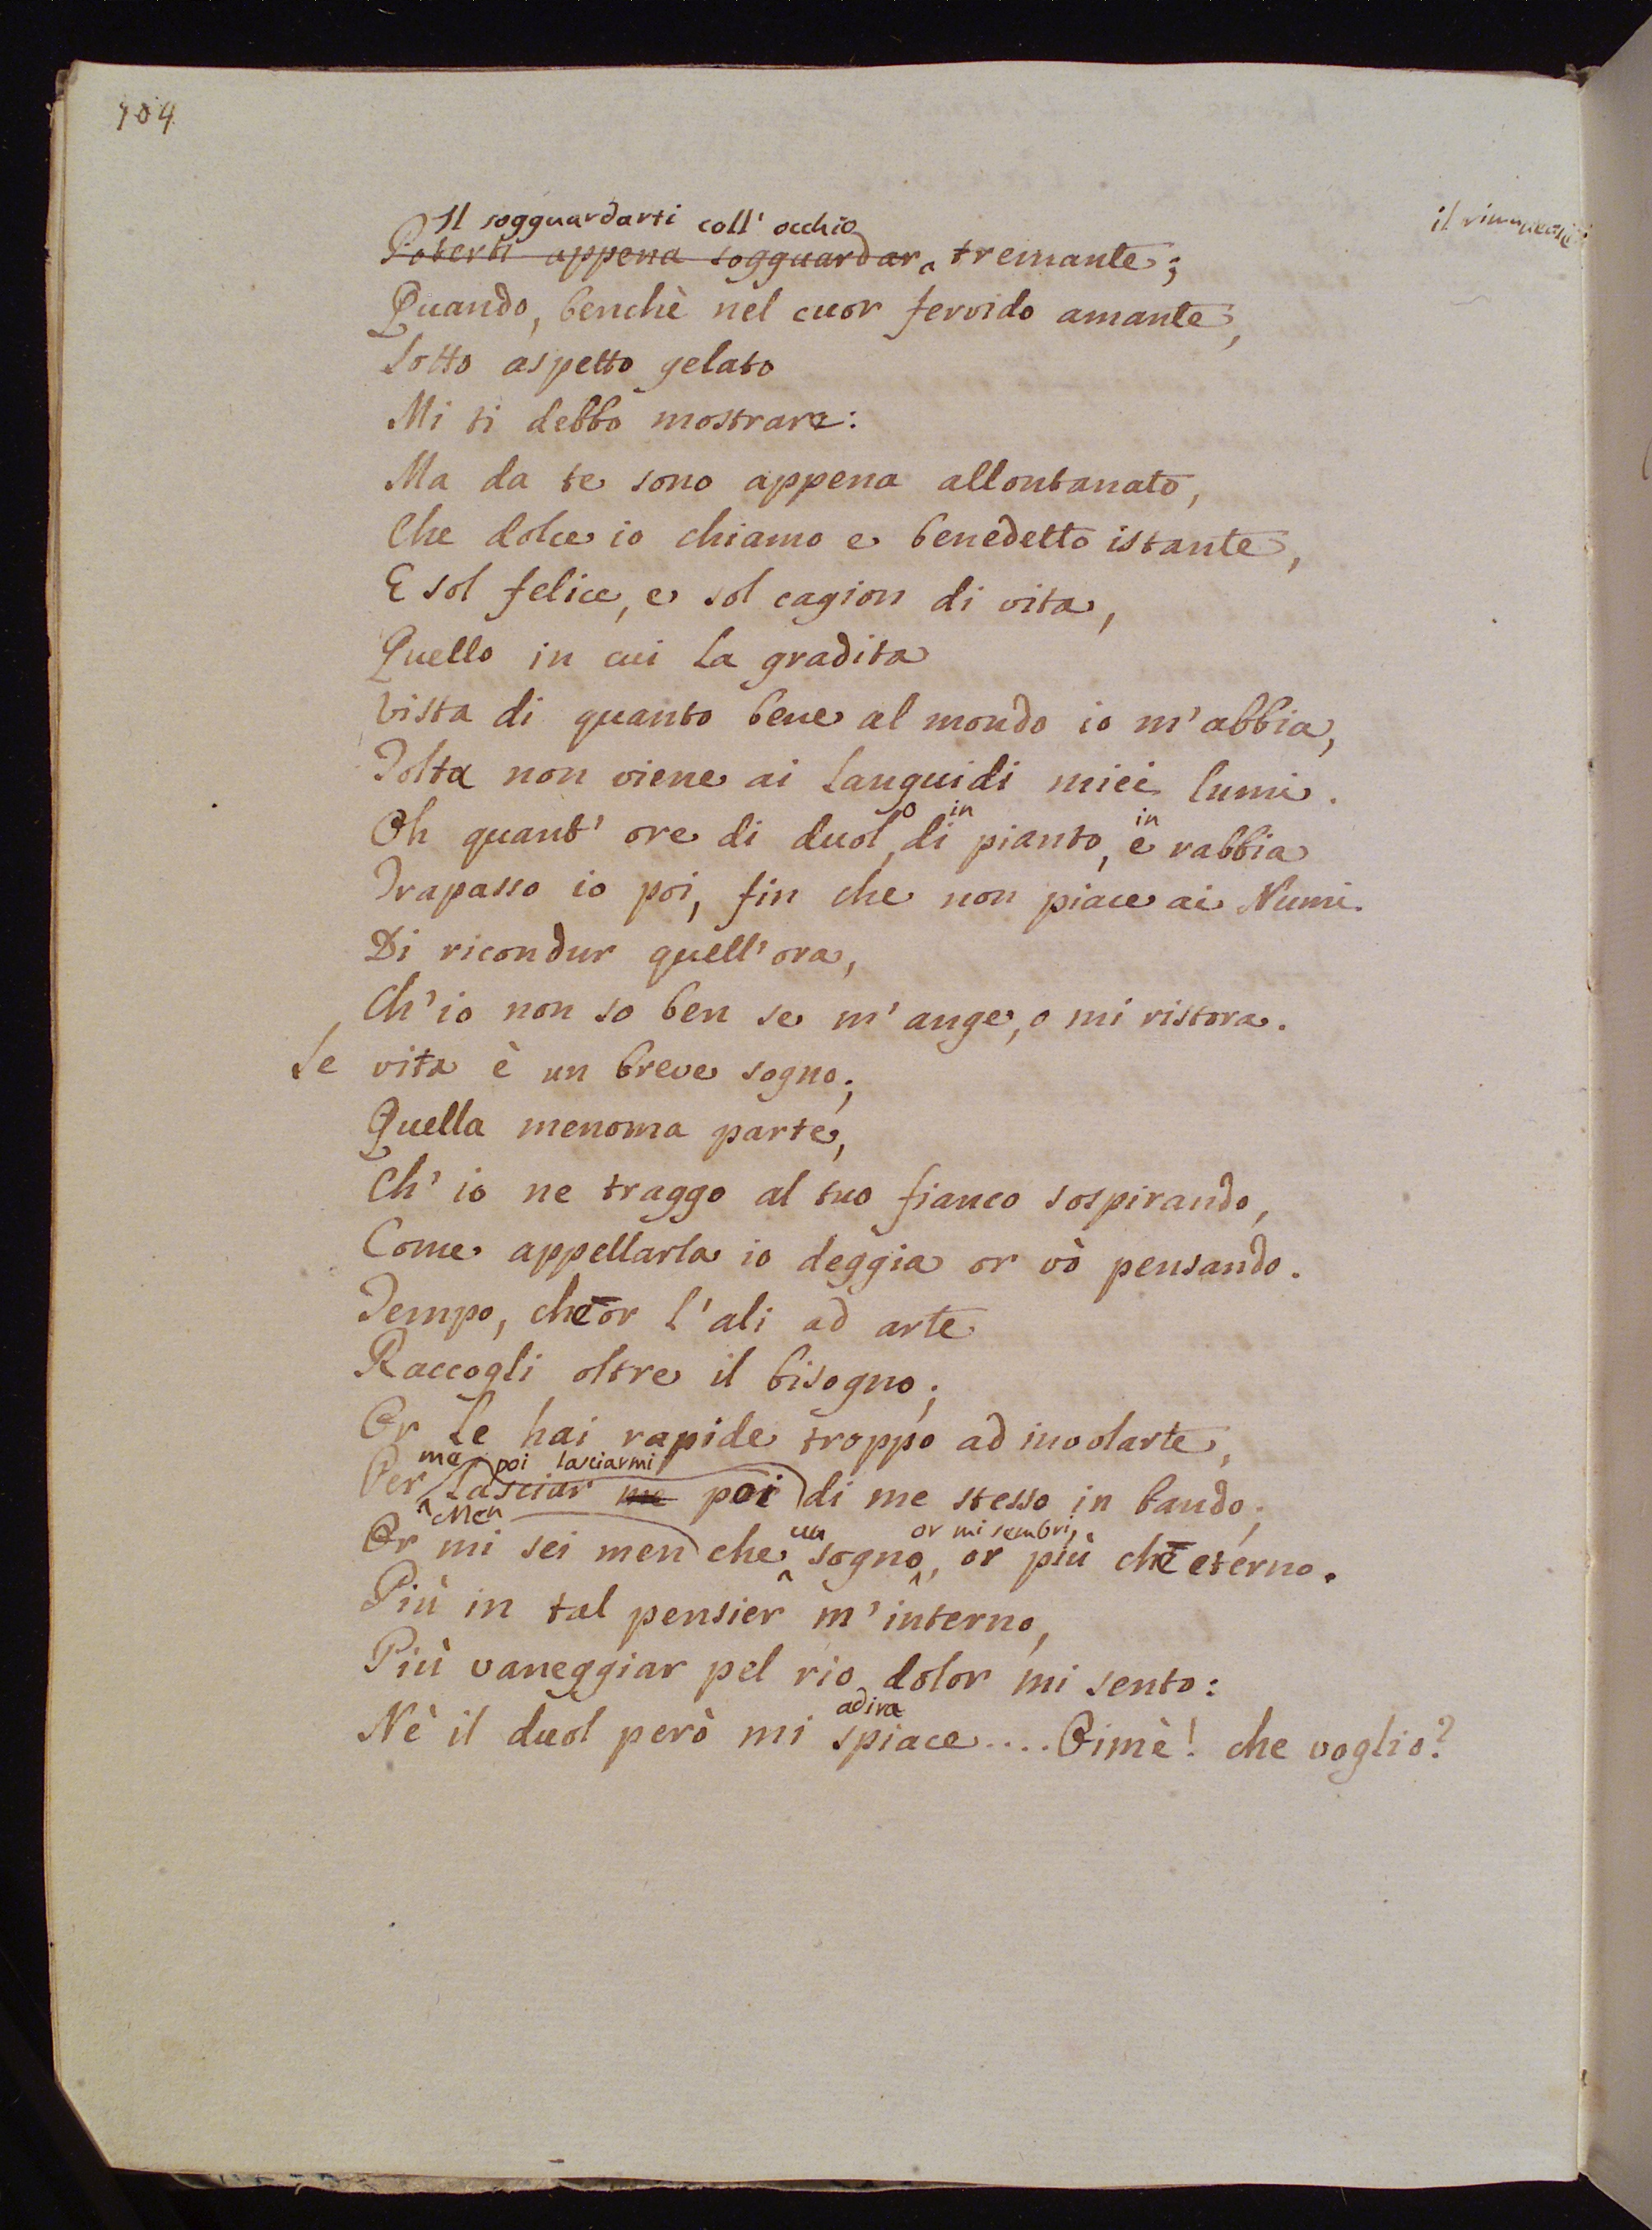 104
Il sogguardarti coll' occhio
Poterti appena sogguardar tremante;
Quando, benchè nel cuor fervido amante,
Sotto aspetto gelato
Mi ti debbo mostrare:
Ma da te sono appena allontanato,
Che dolce io chiamo e benedetto istante,
E sol felice, e sol cagion di vita,
Quello in cui la gradita
Vista di quanto bene al mondo io m'abbia,
Tolta non viene ai languidi miei lumi.
o in in
Oh quant' ore di duol, di pianto, e rabbia
Trapasso io poi, fin che non piace ai Numi
Di ricondur quell'ora,
Ch'io non so ben se m'ange, o mi ristora.
Se vita è un breve sogno;
Quella menoma parte,
Ch' io ne traggo al tuo fianco sospirando,
Come appellarla io deggia or vò pensando.
Tempo, che or l'ali ad arte
Raccogli oltre il bisogno;
Or le hai rapide troppo ad involarte,
ma poi lasciarmi
Per lasciar me poi di me stesso in bando;
Men un or mi sembri,
Or mi sei men che sogno, or più che eterno.
Più in tal pensier m'interno,
Più vaneggiar pel rio dolor mi sento:
adira
Nè il duol però mi spiace.... Oimè! che voglio?
il